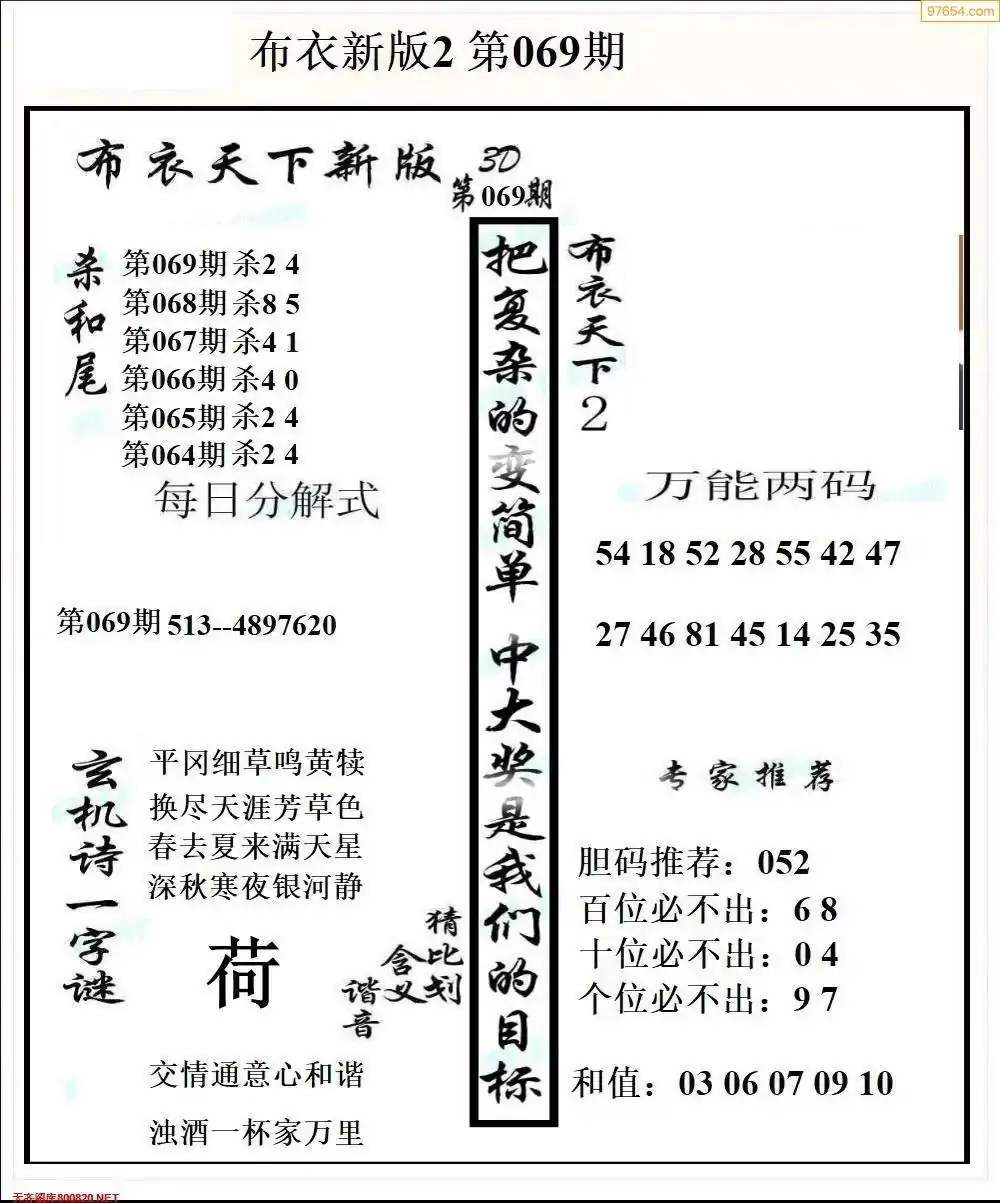 97654.com
布衣新版2 第069期
布衣天下新版
3D
第069期
杀和尾
第069期杀2 4
第068期杀8 5
第067期杀4 1
第066期杀4 0
第065期杀2 4
第064期杀2 4
每日分解式
第069期 513--4897620
把复杂的变简单 中大奖是我们的目标
布衣天下2
万能两码
54 18 52 28 55 42 47
27 46 81 45 14 25 35
玄机诗一字谜
平冈细草鸣黄犊
换尽天涯芳草色
春去夏来满天星
深秋寒夜银河静
荷
猜比划
含义
谐音
交情通意心和谐
浊酒一杯家万里
专家推荐
胆码推荐：052
百位必不出：6 8
十位必不出：0 4
个位必不出：9 7
和值：03 06 07 09 10
天齐图库800820.NET